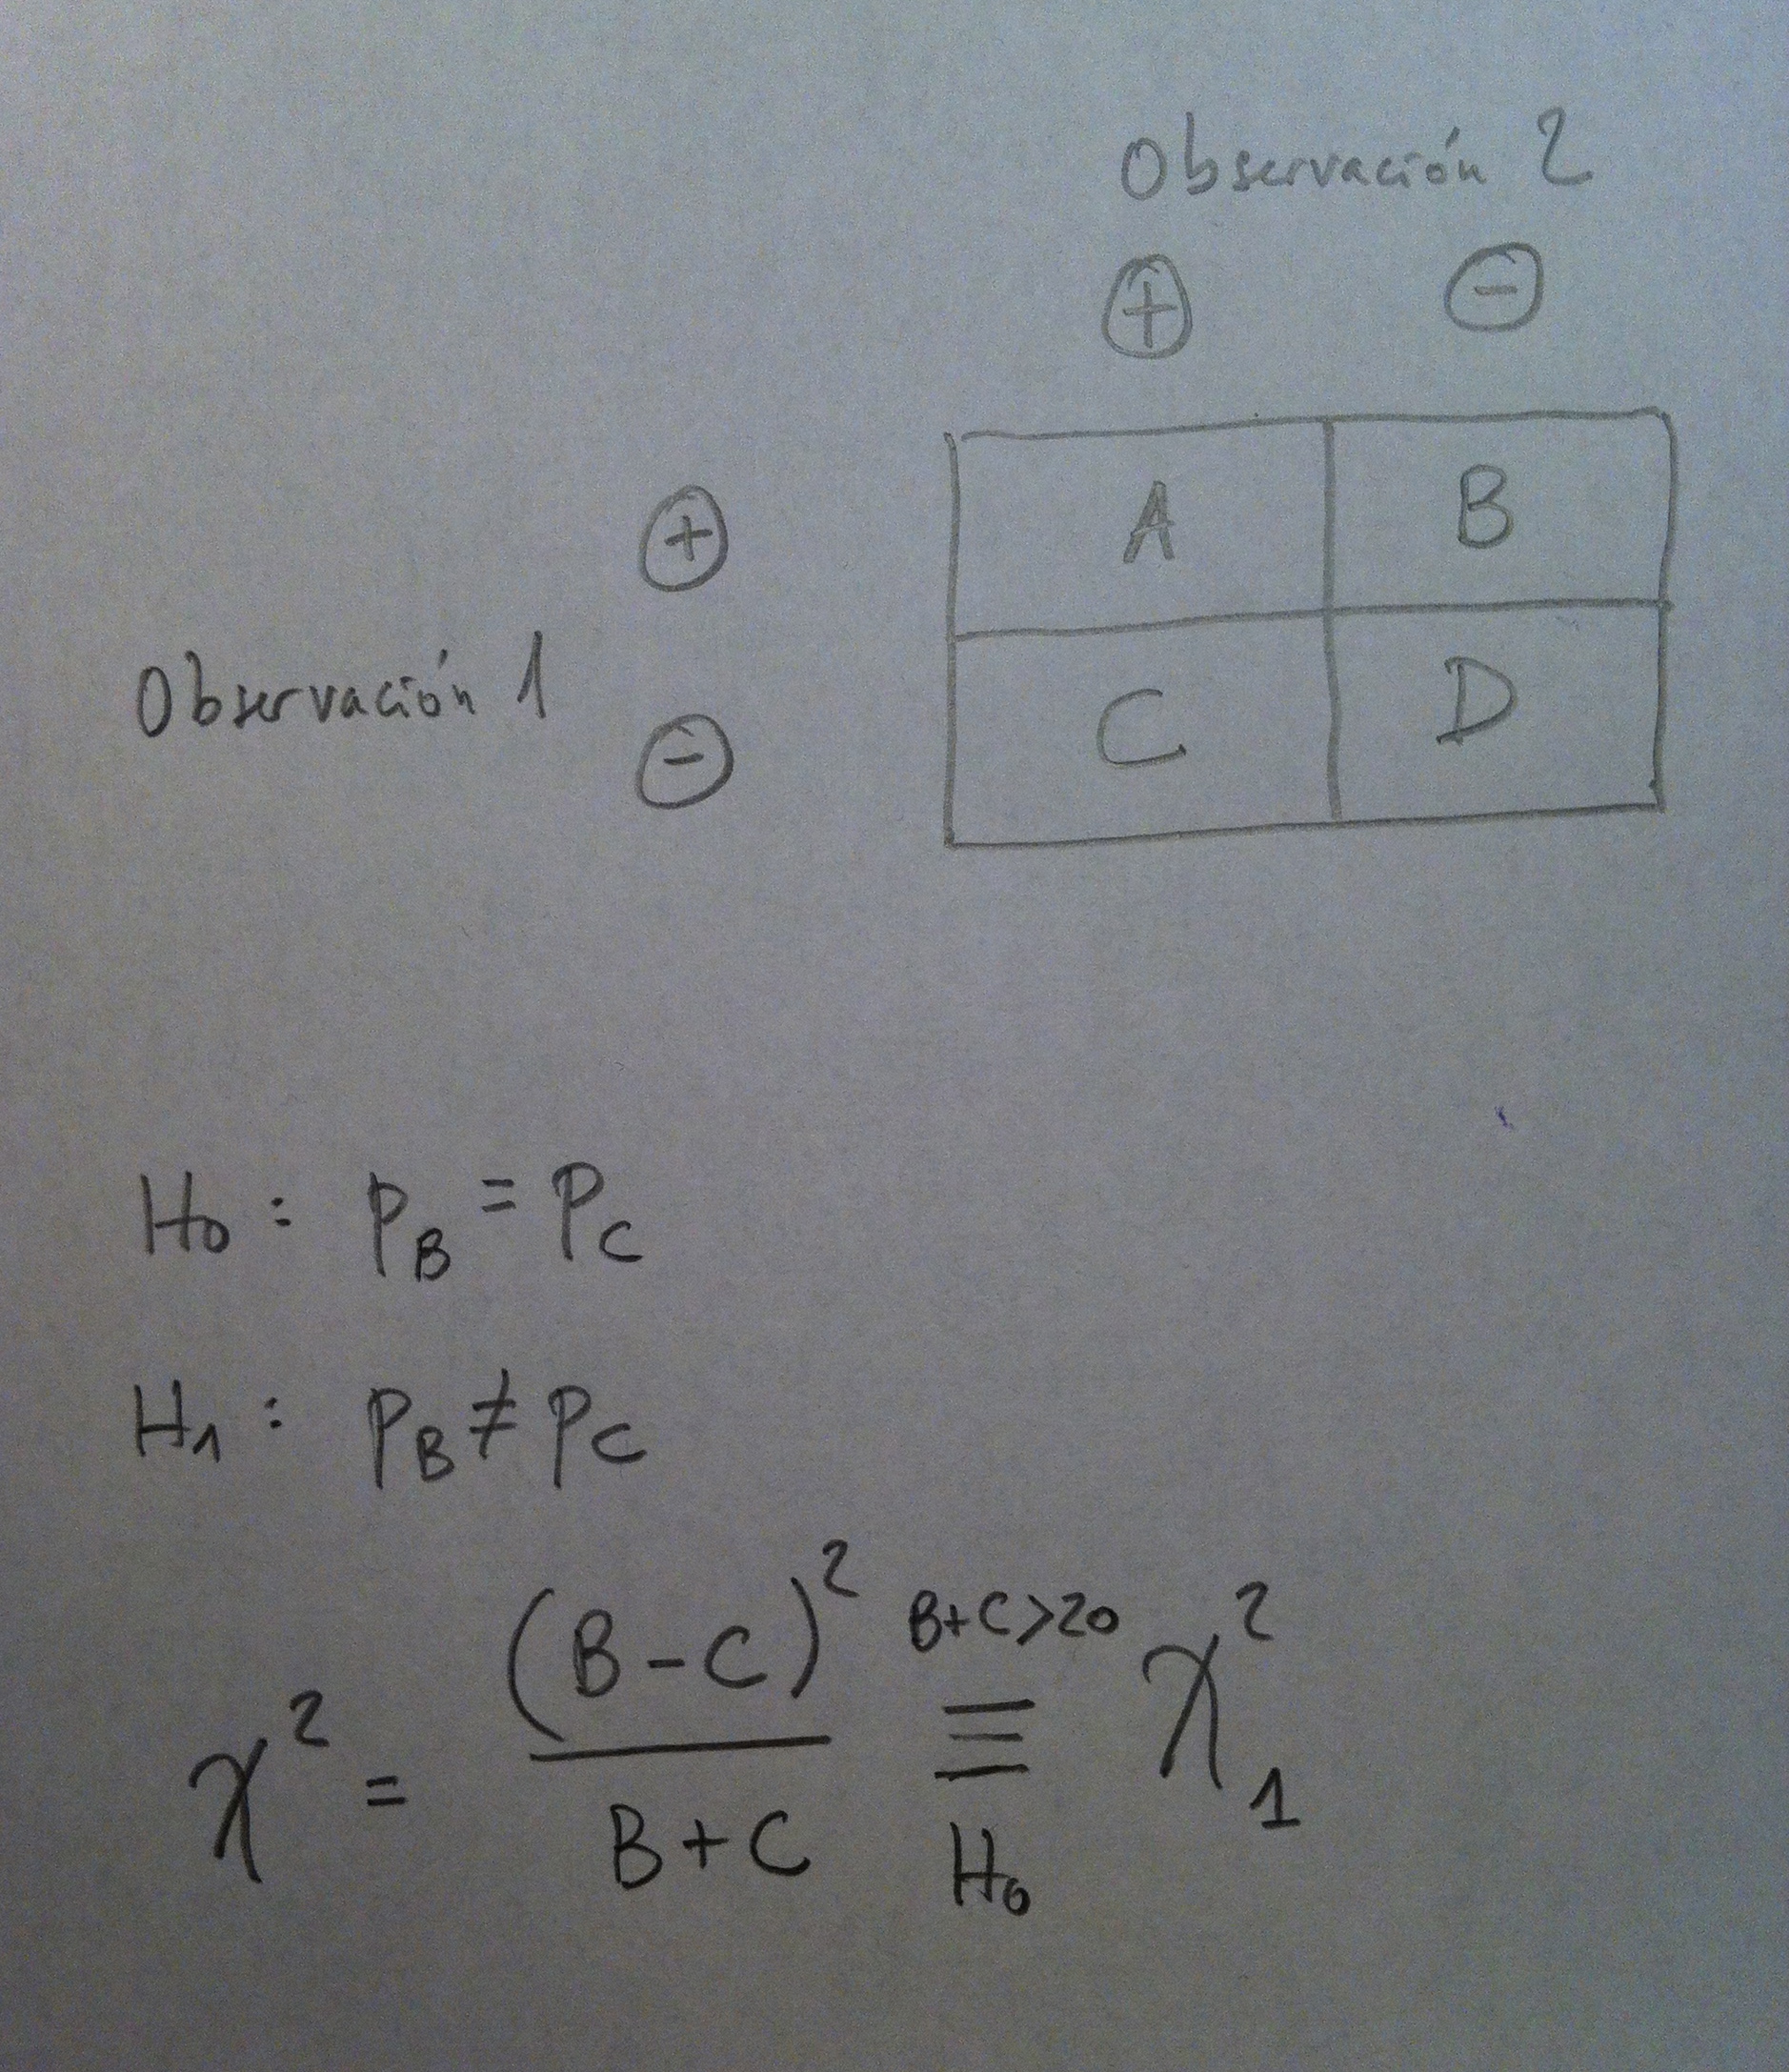 Observación 2
⊕ ⊖
⊕ A B
Observación 1
⊖ C D
H₀ : P_B = P_C
H₁ : P_B ≠ P_C
χ² = (B-C)² / B+C B+C>20 ≡ H₀ χ²₁